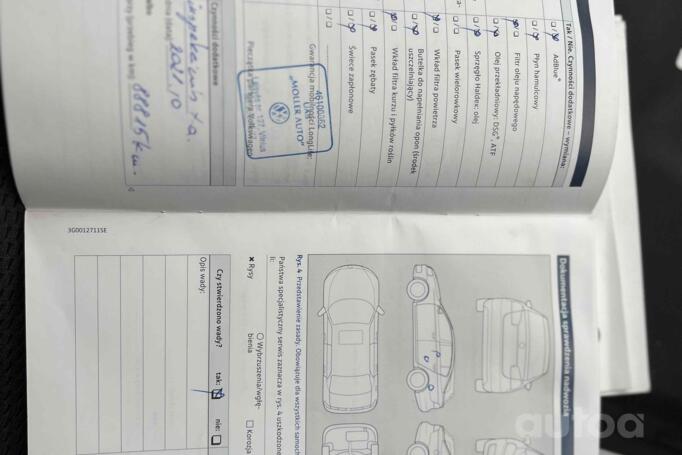 Tak / Nie. Czynności dodatkowe – wymiana:
AdBlue®
Płyn hamulcowy
Filtr oleju napędowego
Olej przekładniowy: DSG®, ATF
Sprzęgło Haldex: olej
Pasek wielorowkowy
Wkład filtra powietrza
Butelka do napełniania opon (środek
uszczelniający)
Wkład filtra kurzu i pyłków roślin
Pasek zębaty
Świece zapłonowe
Gwarancja mobilności LongLife:
46100362
UAB
„MOLLER AUTO“
Vilnius
Pieczątka partnera Volkswagen
Czynności dodatkowe
88815 km.
3G0012711SE
Dokumentacja sprawdzenia nadwozia
Rys. 4 Przedstawienie zasady. Obowiązuje dla wszystkich samoch
Państwa specjalistyczny serwis zaznacza w rys. 4 uszkodzone
li:
× Rysy
○ Wybrzuszenia/wgłę-
bienia
□ Korozja
Czy stwierdzono wady? tak: nie:
Opis wady:
autoa